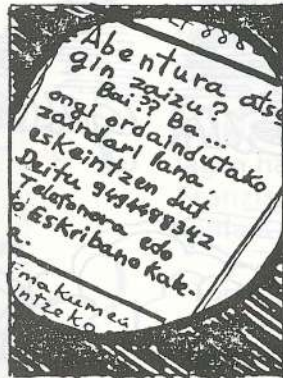 Abentura atse
gin zaizu?
Bai?? Ba...
ongi ordaindutako
zaindari lana,
eskeintzen dut
Deitu 9494488342
Telefonora edo
Eskribano kale-
imakumeu
intzeko